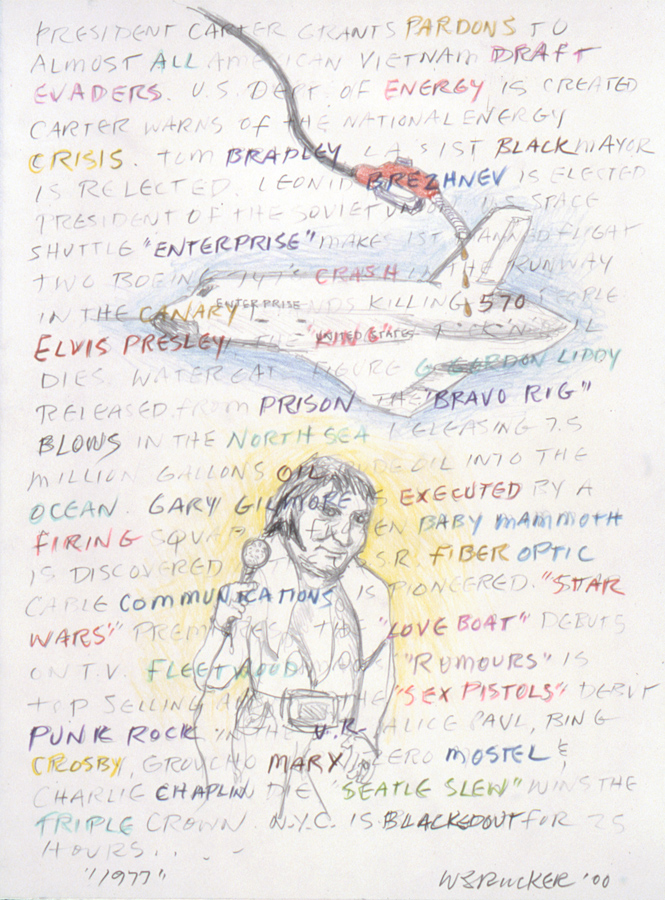 PRESIDENT CARTER GRANTS PARDONS TO
ALMOST ALL AMERICAN VIETNAM DRAFT
EVADERS. U.S. DEPT. OF ENERGY IS CREATED
CARTER WARNS OF THE NATIONAL ENERGY
CRISIS. TOM BRADLEY L.A.'S 1ST BLACK MAYOR
IS RELECTED. LEONID BREZHNEV IS ELECTED
PRESIDENT OF THE SOVIET UNION U.S. SPACE
SHUTTLE "ENTERPRISE" MAKES 1ST MANNED FLIGHT
TWO BOEING 747'S CRASH IN THE RUNWAY
ENTERPRISE
IN THE CANARY KILLING 570 PEOPLE
UNITED STATES
ELVIS PRESLEY, THE "KING"
DIES. WATERGATE FIGURE G. GORDON LIDDY
RELEASED FROM PRISON THE "BRAVO RIG"
BLOWS IN THE NORTH SEA RELEASING 7.5
MILLION GALLONS OIL INTO THE
OCEAN. GARY GILMORE IS EXECUTED BY A
FIRING SQUAD BABY MAMMOTH
IS DISCOVERED S.R. FIBER OPTIC
CABLE COMMUNICATIONS IS PIONEERED. "STAR
WARS" PREMIERES THE "LOVE BOAT" DEBUTS
ON T.V. FLEETWOOD "RUMOURS" IS
TOP SELLING THE "SEX PISTOLS" DEBUT
PUNK ROCK IN THE U.K. ALICE PAUL, BING
CROSBY, GROUCHO MARX, ZERO MOSTEL &
CHARLIE CHAPLIN DIE "SEATLE SLEW" WINS THE
TRIPLE CROWN. N.Y.C. IS BLACKEDOUT FOR 25
HOURS...
"1977"
WSRUCKER '00